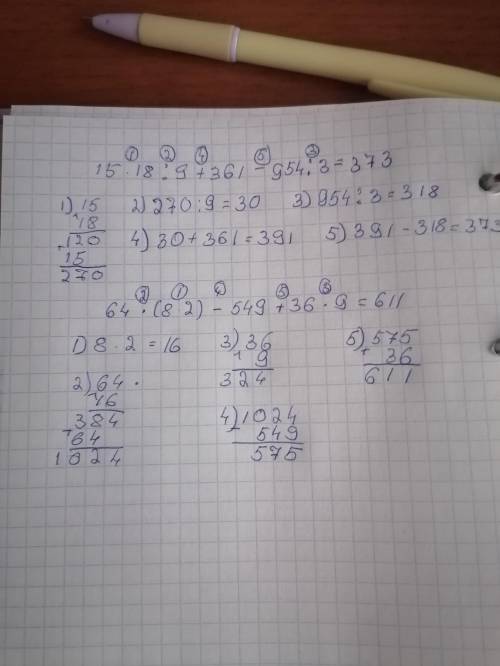 ① ② ④ ⑤ ③
15 · 18 : 9 + 361 - 954 : 3 = 373
1) 15 2) 270 : 9 = 30 3) 954 : 3 = 318
18
120 4) 30 + 361 = 391 5) 391 - 318 = 373
+ 15
270
② ① ④ ⑤ ③
64 · (8 2) - 549 + 36 · 9 = 611
1) 8 · 2 = 16 3) 36 5) 575
9 + 36
2) 64 · 324 611
16
384 4) 1024
+ 64 - 549
1024 575